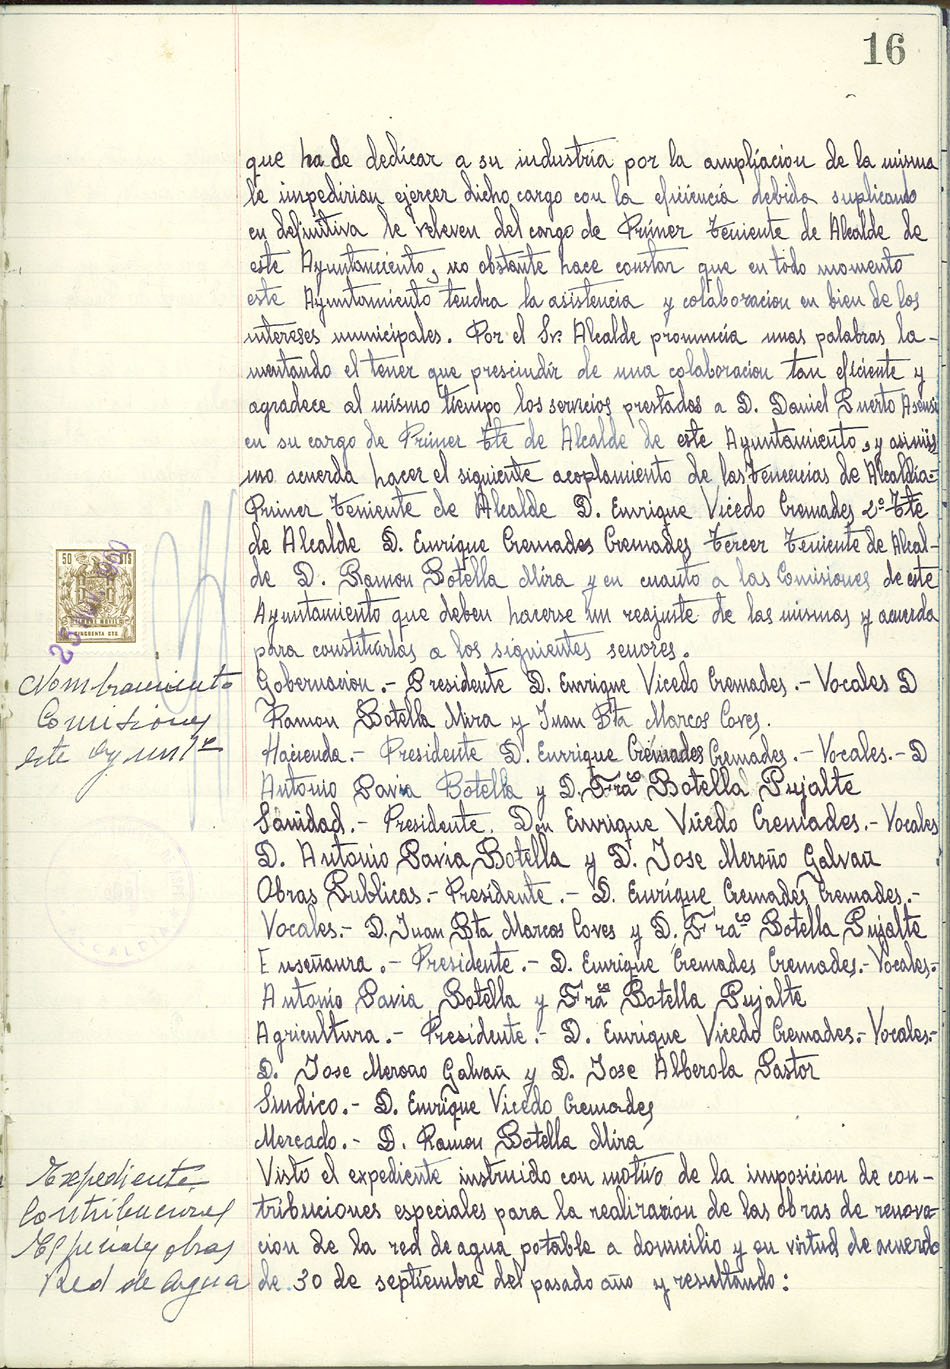 16
que ha de dedicar a su industria por la ampliacion de la misma
le impedirian ejercer dicho cargo con la eficiencia debida suplicando
en definitiva le releven del cargo de Primer Teniente de Alcalde de
este Ayuntamiento, no obstante hace constar que en todo momento
este Ayuntamiento tendra la asistencia y colaboracion en bien de los
intereses municipales. Por el Sr. Alcalde pronuncia unas palabras la-
mentando el tener que prescindir de una colaboracion tan eficiente y
agradece al mismo tiempo los servicios prestados a D. Daniel Puerto Asensi
en su cargo de Primer Tte de Alcalde de este Ayuntamiento, y asimis
mo acuerda hacer el siguiente acoplamiento de las Tenencias de Alcaldia:-
Primer Teniente de Alcalde D. Enrique Vicedo Cremades 2º Tte
de Alcalde D. Enrique Cremades Cremades Tercer Teniente de Alcal-
de D. Ramon Botella Mira y en cuanto a las Comisiones de este
Ayuntamiento que deben hacerse un reajuste de las mismas y acuerda
para constituirlas a los siguientes señores.
50 CTS
CINCUENTA CTS
Nombramiento
Comisiones
este Ayunt
Gobernacion.- Presidente D. Enrique Vicedo Cremades.- Vocales D
Ramon Botella Mira y Juan Bta Marcos Coves.
Hacienda.- Presidente D. Enrrique Cremades Cremades.- Vocales.- D
Antonio Pavia Botella y D. Fraco Botella Pujalte
Sanidad.- Presidente. Don Enrique Vicedo Cremades.- Vocales
D. Antonio Pavia Botella y D. Jose Meroño Galvañ
Obras Publicas.- Presidente.- D. Enrique Cremades Cremades.-
Vocales.- D. Juan Bta Marcos Coves y D. Fraco Botella Pujalte
Enseñanza.- Presidente.- D. Enrique Cremades Cremades.- Vocales.-
Antonio Pavia Botella y Fraco Botella Pujalte
Agricultura.- Presidente.- D. Enrique Vicedo Cremades.- Vocales.-
D. Jose Meroño Galvañ y D. Jose Alberola Pastor
Sindico.- D. Enrique Vicedo Cremades
Mercado.- D. Ramon Botella Mira
ALCALDIA
Expediente
Contribuciones
Especiales obras
Red de Agua
Visto el expediente instruido con motivo de la imposicion de con-
tribuciones especiales para la realizacion de las obras de renova-
cion de la red de agua potable a domicilio y en virtud de acuerdo
de 30 de septiembre del pasado año y resultando: